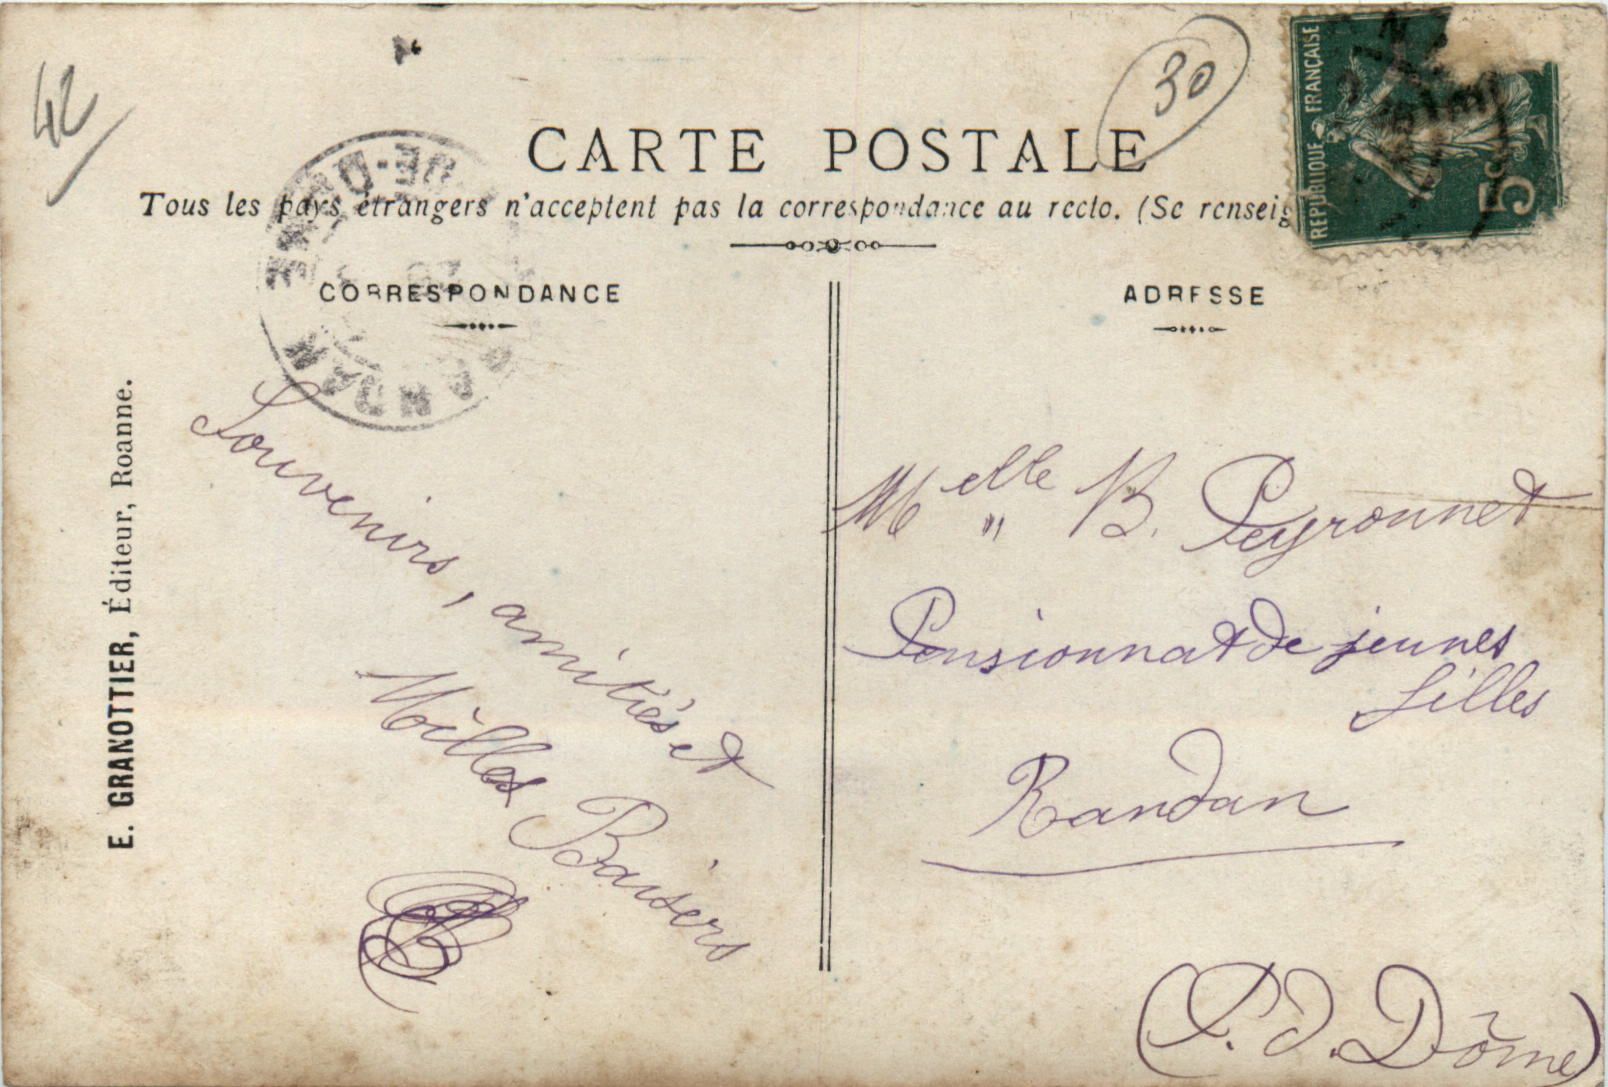 42
30
CARTE POSTALE
Tous les pays étrangers n'acceptent pas la correspondance au recto. (Se renseig
RÉPUBLIQUE FRANÇAISE
5
CORRESPONDANCE
ADRESSE
RANDAN
DE-DÔME
E. GRANOTTIER, Éditeur, Roanne.
Souvenirs, amitiés et
Milles Baisers
Melle B. Peyronnet
Pensionnat de jeunes
filles
Randan
(P. d. Dôme)